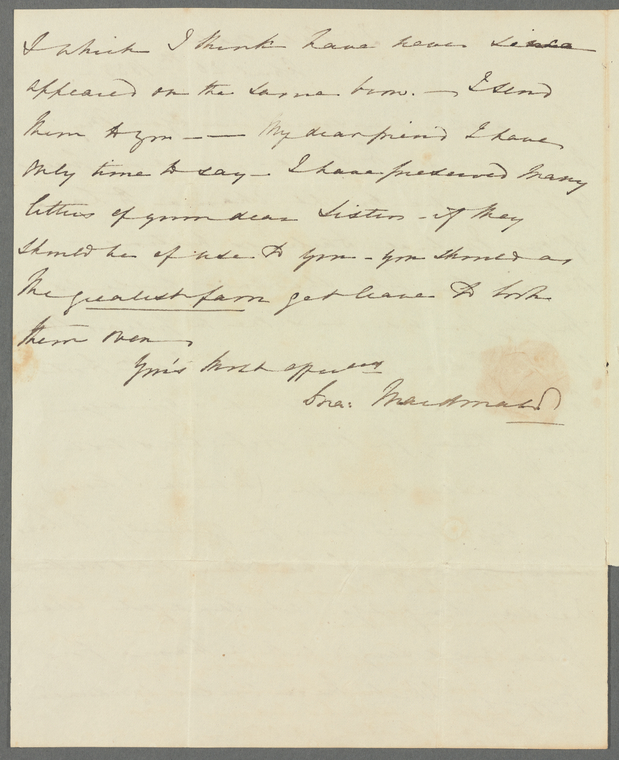 & which I think have never since
appeared on the same brow. — I send
them to you — — My dear friend I have
only time to say — I have preserved many
letters of your dear Sisters — if they
should be of use to you — you should as
the greatest favor get leave to look
them over
Your's Most affec
Macdonald